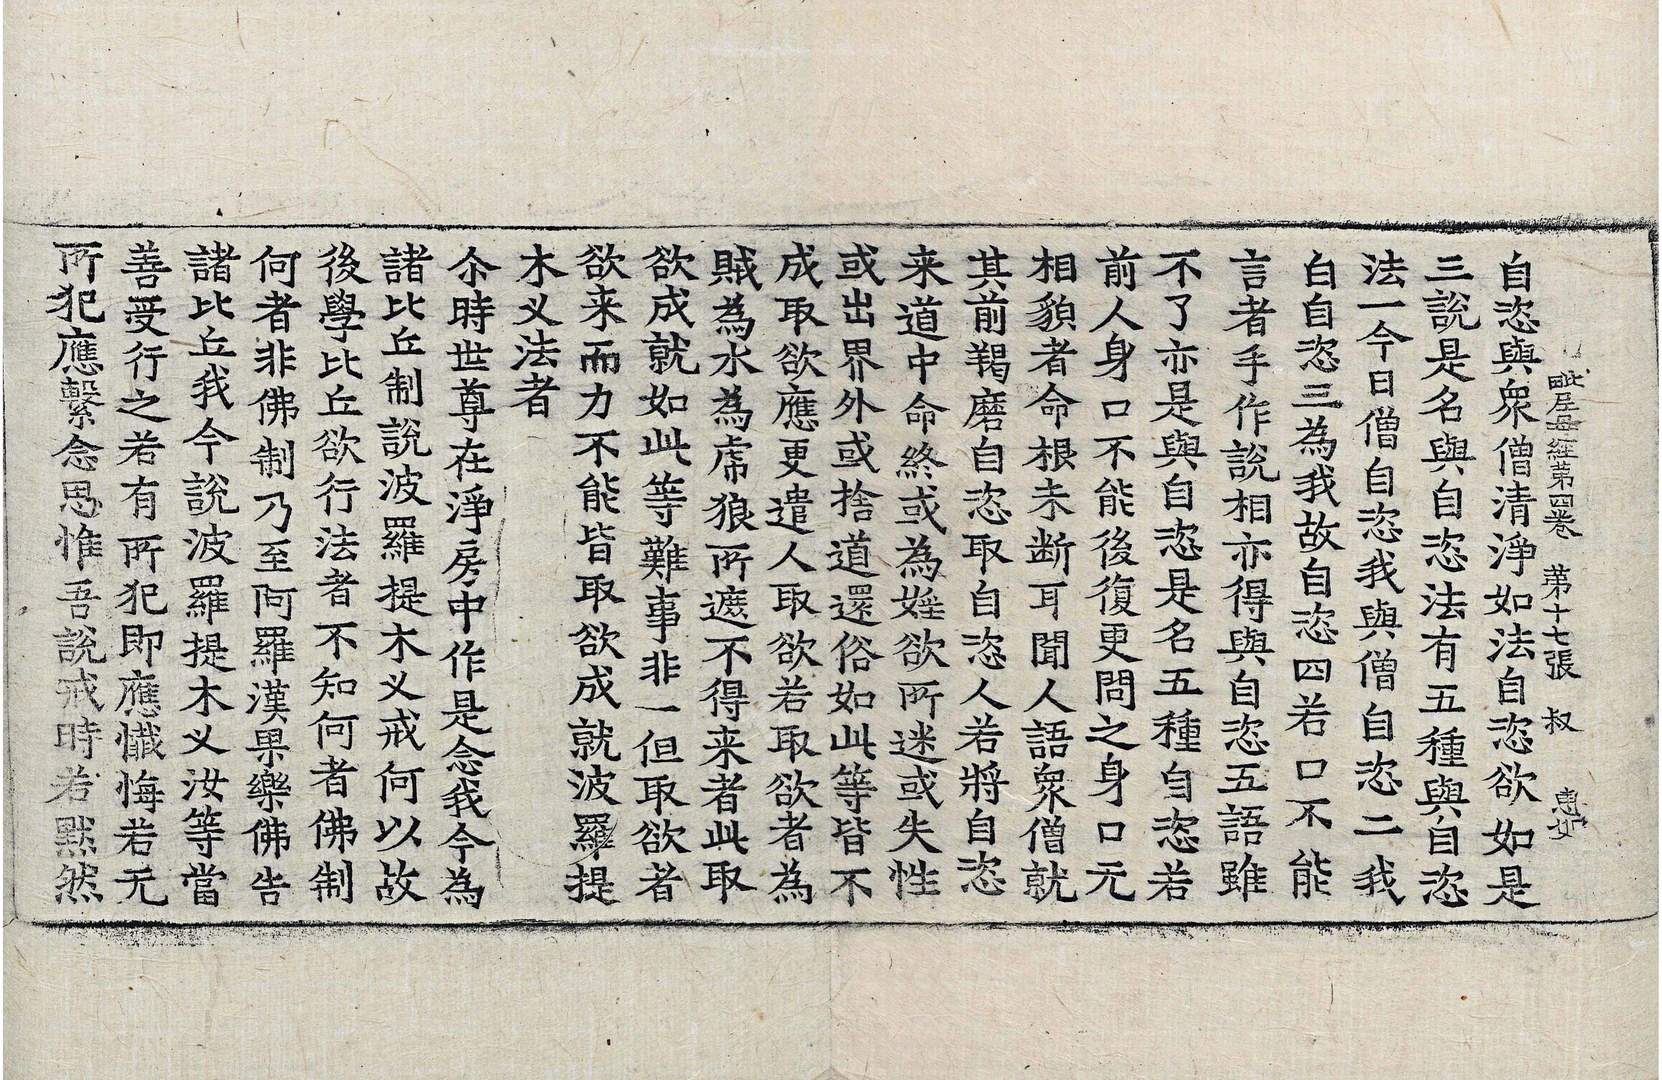 毗尼母經第四卷　第十七張　叔　惠女
自恣與衆僧清淨如法自恣欲如是
三說是名與自恣法有五種與自恣
法一今日僧自恣我與僧自恣二我
白自恣三為我故自恣四若口不能
言者手作說相亦得與自恣五語雖
不了亦是與自恣是名五種自恣若
前人身口不能後復更問之身口无
相貌者命根未断耳聞人語衆僧就
其前羯磨自恣取自恣人若將自恣
来道中命終或為婬欲所迷或失性
或出界外或捨道還俗如此等皆不
成取欲應更遣人取欲若取欲者為
賊為水為虎狼所遮不得来者此取
欲成就如此等難事非一但取欲者
欲来而力不能皆取欲成就波羅提
木义法者
尒時世尊在淨房中作是念我今為
諸比丘制說波羅提木义戒何以故
後學比丘欲行法者不知何者佛制
何者非佛制乃至阿羅漢果樂佛告
諸比丘我今說波羅提木义汝等當
善受行之若有所犯即應懺悔若无
所犯應繫念思惟吾說戒時若黙然